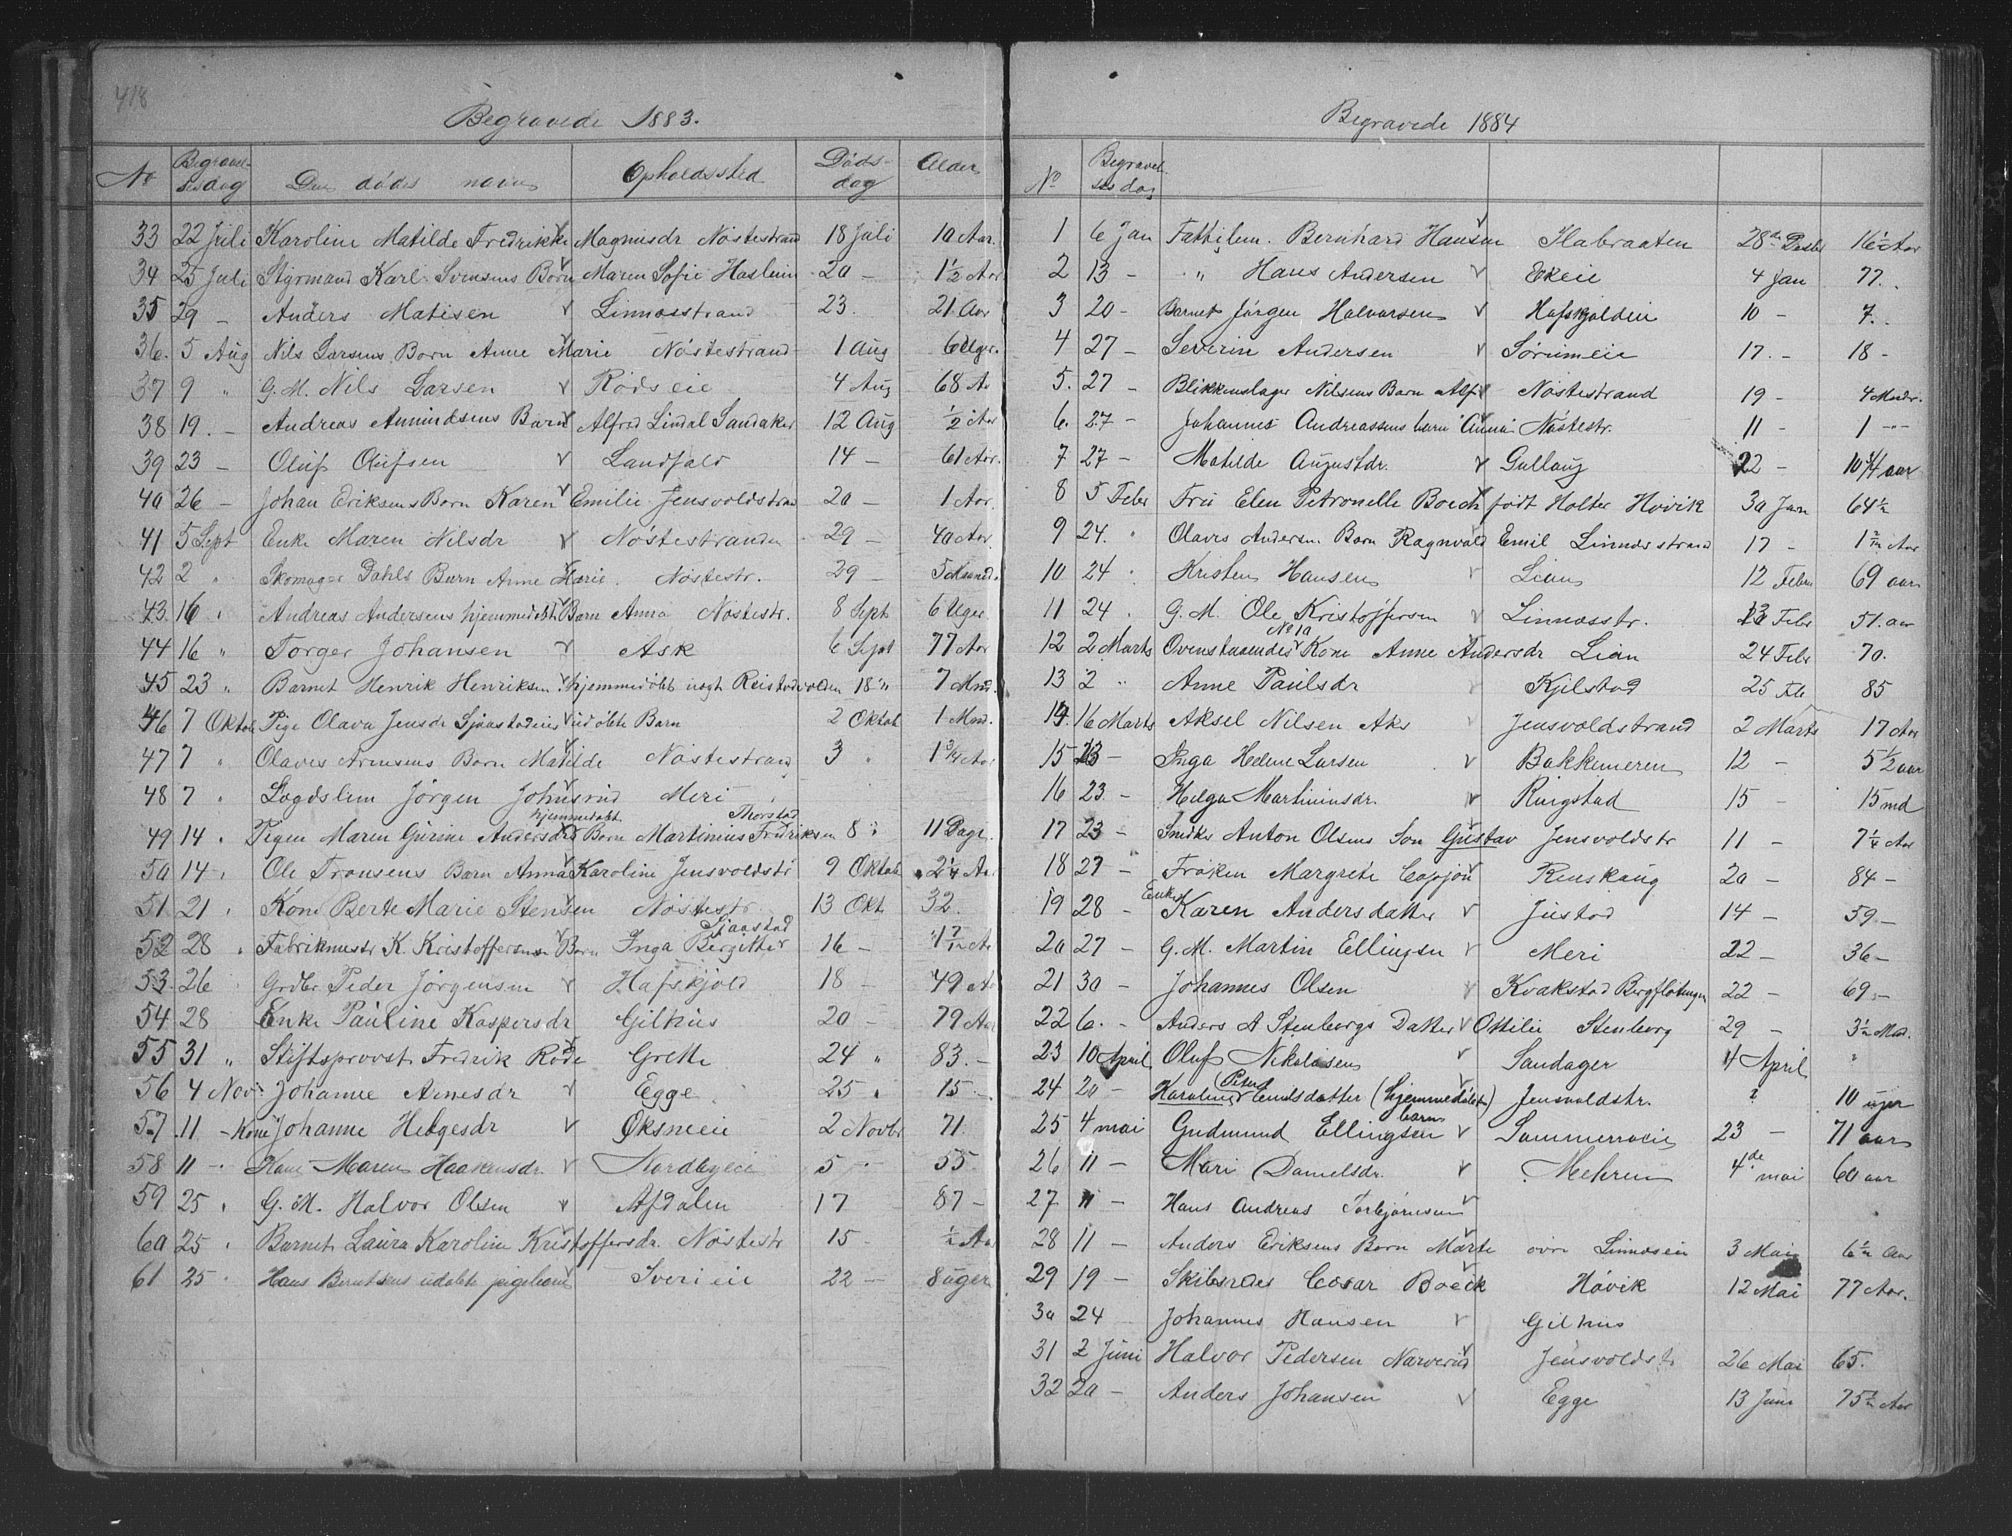 418
Begravede 1883.
No Begravelsesdag Den dødes navn Opholdssted Dødsdag Alder
33 22 Juli Karoline Matilde Fredrikke Magnusdr Nöstestrand 18 Juli 10 Aar.
34 25 Juli Styrmand Karl Svensens Børn Maren Sofie Haslum 20 — 1½ Aar
35 29 — Anders Matisen Linnæsstrand 23. 21 Aar
36. 5 Aug Nils Larsens Born Anne Marie Nöstestrand 1 Aug 6 Uger.
37 9 " G. M. Nils Larsen Rödseie 4 Aug 68 Aar
38 19. — Andreas Amundsens Barn Alfred Lindal Sandaker 12 Aug ½ Aar
39 23 — Oluf Olufsen Landfald 14 — 61 Aar.
40 26 — Johan Eriksens Born Karen Emilie Jensvoldstrand 20 — 1 Aar.
41 5 Sept Enke Maren Nilsdr Nöstestranden 29 — 40 Aar.
42 2 " Skomager Dahls Barn Anne Marie. Nöstestr. 29 — 5 Maaned.
43. 16 " Andreas Andersens hjemmedøbt Barn Anna Nöstestr. 8 Sept 6 Uger
44 16 " Torger Johansen Ask 6 Sept 77 Aar
45 23 " Barnet Henrik Henriksen hjemmedøbt Reistadvolden 18 " 7 Mnd.
46 7 Oktob Pige Olava Jensdr Sjaastadeies udøbte Barn 2 Oktob 1 Mnd.
47 7 " Olaves Arnesens Born Matilde Nöstestrand 3 " 1¾ Aar
48 7 " Logdslem Jörgen Johnsrud Meri
49 14 " Pigen Maren Gurine Andersdrs hjemmedøbt Born Martinius Fredriksen Thorstad 8 " 11 Dage.
50 14 " Ole Tronsens Barn Anna Karoline Jensvoldstr 9 Oktob 2¼ Aar
51 21 " Kone Berte Marie Stensen Nöstestr. 13 Okt 32.
52 28 " Fabrikmestr K. Kristoffersens Born Inga Bergitte Sjaastad 16 — 1 7/12 Aar
53. 26 Grdbr Peder Jörgensen Hafskjold 18 — 49 Aar
54. 28 Enke Pauline Kaspersdr Gilhus 20 — 79 Aar
55 31 " Stiftsprovst Fredrik Rode Grette 24 " 83. —
56 4 Nov Johanne Arnesdr Egge 25 " 15 —
57 11 — Kone Johanne Helgesdr Øksneeie 2 Novbr 71.
58 11 — Kone Maren Haakensdr. Nordbyeie 5 — 55
59 25 " G. M. Halvor Olsen Afdalen 17 87 —
60 25 " Barnet Laura Karoline Kristoffersdr. Nöstestr 15 — ½ Aar
61 25 " Hans Berntsens udøbte pigebarn Sverieie 22 — 8 uger
Begravede 1884
No Begravelsesdag
1 6 Jan Fattiglem. Bernhard Hansen Ilabraaten 28de 16½ Aar
2 13 — " Hans Andersen Ekeie 4 Jan 77.
3 20 — Barnet Jörgen Halvorsen Hafskjoldeie 10 — 7.
4 27 — Severin Andersen Sörumeie 17. — 18 —
5. 27 — Blikkenslager Nilsens Barn Alf Nöstestrand 19 — 4 Mndr.
6. 27 — Johannes Andreassens barn Anna Nöstestr. 11 — 1 —
7 27 — Matilde Augustdr. Gullaug 22 — 10¼ aar
8 5 Febr Fru Elen Petronelle Boeck født Holter Hövik 30 Jan 64½
9 24. " Olaves Andersens Born Ragnvald Emil Linnæsstrand 17 — 1 Aar
10 24 " Kristen Hansen Lian 12 Febr 69 aar
11 24 " G. M. Ole Kristoffersen Linnæsstr. 13 Febr 51. aar
12 2 Marts Ovenstaaendes No 10 Kone Anne Andersdr Lian 24 Febr 70.
13 2 " Anne Paulsdr Kjilstad 25 Feb 85
14. 16 Marts Aksel Nilsen Aker Jensvoldstrand 2 Marts 17 Aar
15 23 — Inga Helene Larsen Bakkemeren 12 — 5½ aar
16 23 — Helga Martiniusdr. Ringstad 15 — 15 md
17 23 — Snedker Anton Olsens Son Gustav Jensvoldstr 11 — 7¼ Aar
18 27 — Fröken Margrete Coppjon Renskaug 20 — 84 —
19 28 — Enke Karen Andersdatter Justad 14 — 59. —
20 27 — G. M. Martin Ellingsen Meri 22 — 36 —
21 30 — Johannes Olsen Kvakstad Bergflötingen 22 — 69. —
22 6. — Anders A Stenborgs Datter Ottilie Stenborg 29 — 3½ Md.
23 10 April Oluf Nikolaisen Sandager 4 April "
24 20 — Karoline Petra Emilsdatter (hjemmedøbt barn) Jensvoldstr. 10 uger
25 4 mai Gudmund Ellingsen 23 — 71 aar
26 11 — Mari Danielsdr. Mehren 4de mai 60 aar
27 11 — Hans Andreas Torbjörnsen
28 11 — Anders Eriksens Born Marte övre Linnæseie 3 Mai 6½ Aar
29 19 — Skibsreder Cæsar Boeck Hövik 12 Mai 77 Aar.
30 24 Johannes Hansen Gilhus
31 2 Juni Halvor Pedersen Narverud Jensvoldstr 26 Mai 65.
32 20 — Anders Johansen Egge 13 Juni 75½ Aar